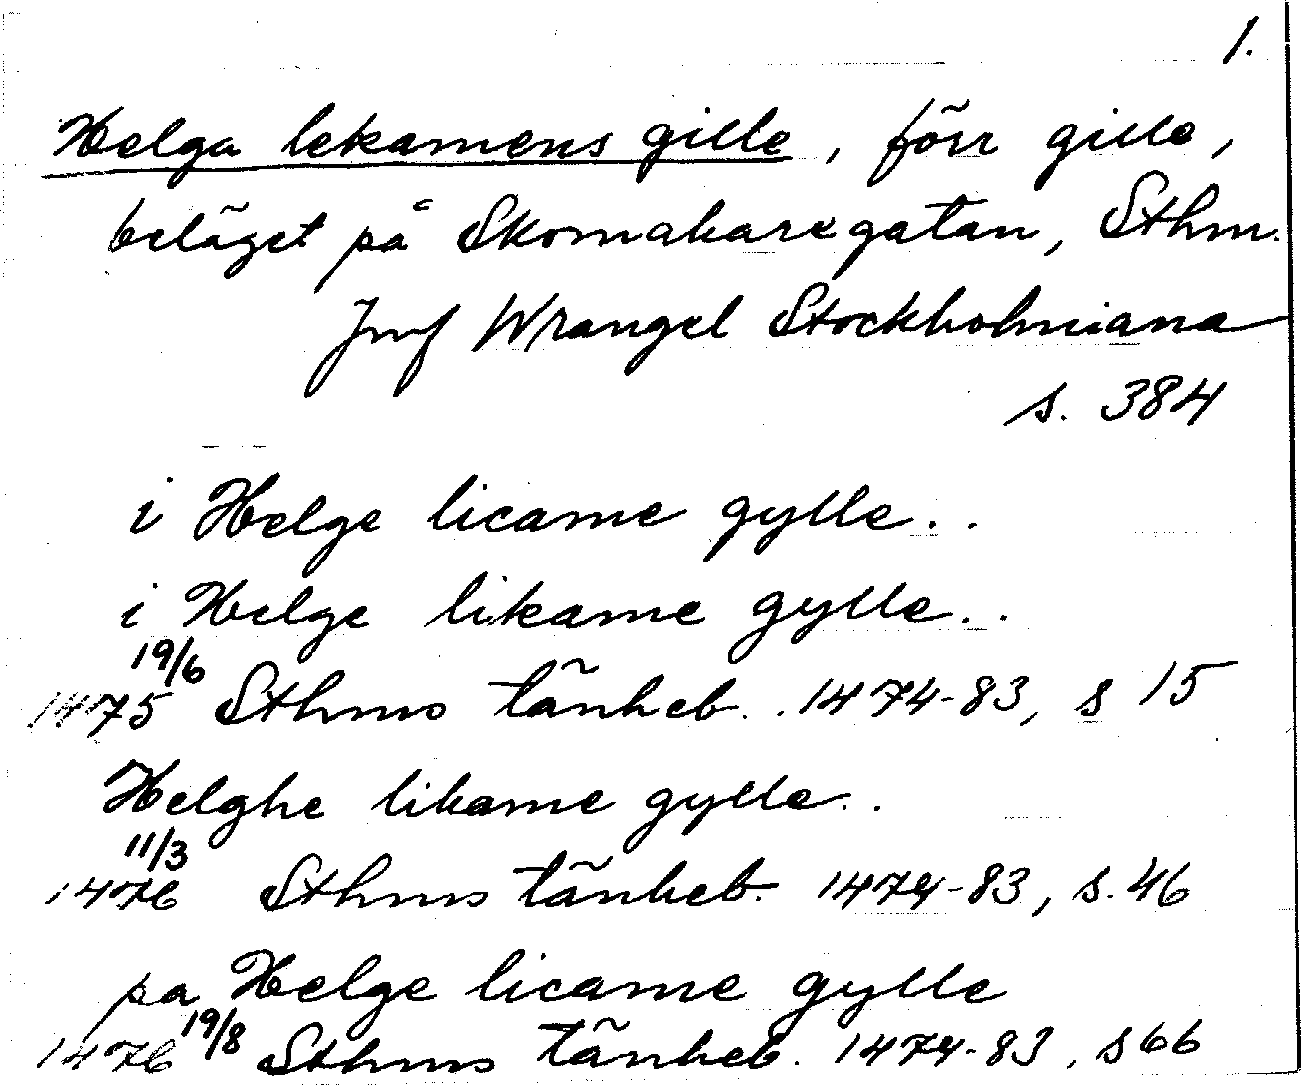 1.
Helga lekamens gille, förr gille,
beläget på Skomakaregatan, Sthm.
Jmf Wrangel Stockholmiana
s. 384
i Helge licame gylle..
i Helge likame gylle..
19/6
1475 Sthms tänkeb. 1474-83, s 15
Helghe likame gylle..
11/3
1476 Sthms tänkeb. 1474-83, s. 46
pa Helge licame gylle
1476 19/8 Sthms tänkeb. 1474-83, s 66